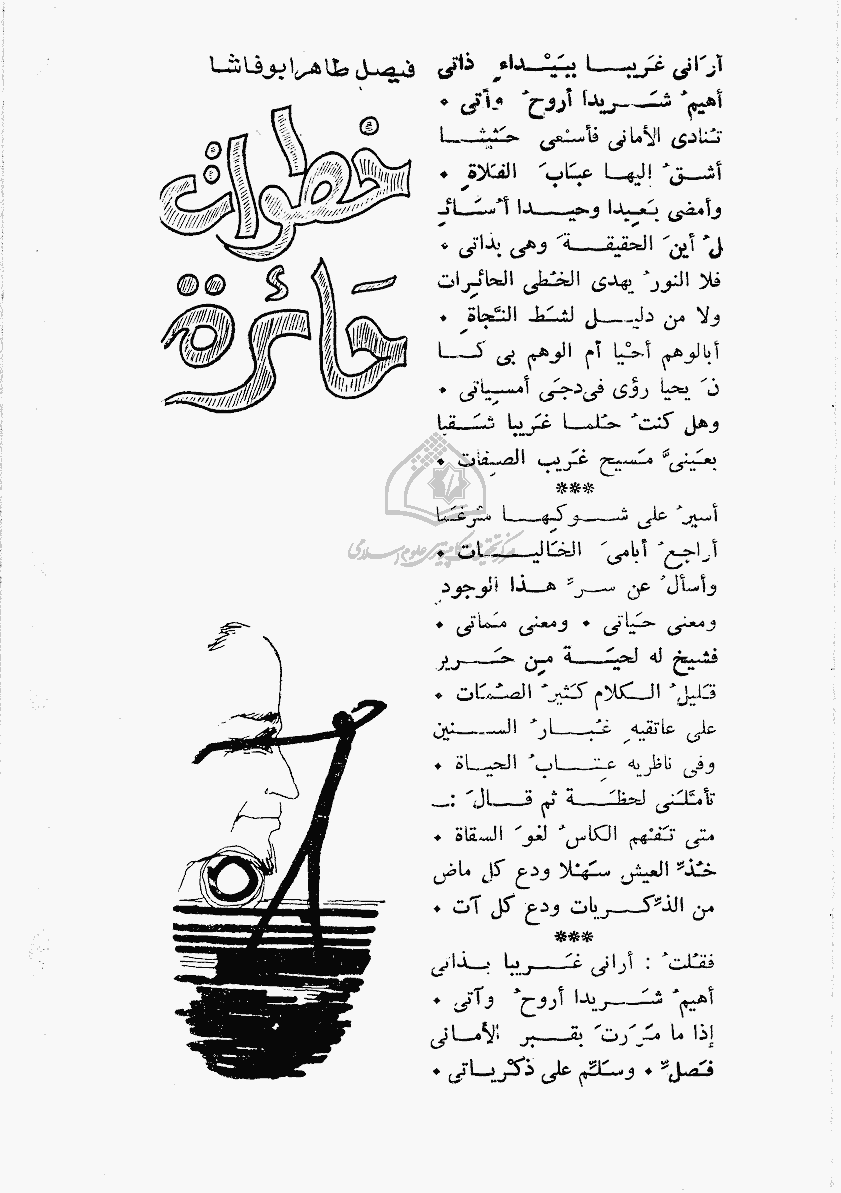 فيصل طاهر ابو فاشا
خطوات
حَائرة
أرَانى غَريبــا ببَيْــداءِ ذاتى
أهيمُ شَــريدا أروحُ وآتى •
تنادى الأمانى فأسْعى حَثيثــا
أشــقُ إليهــا عبَابَ الفَلاةِ •
وأمضى بَعِيدا وحيــدا أُسَــائِـ
لُ أينَ الحقيقــةَ وهى بذاتى •
فلا النورُ يهدى الخُطى الحائِرات
ولا من دليــل لشَط النَّجاةِ •
أبالوهم أحْيا أم الوهم بى كــا
نَ يحيا رؤى فى دجَى أمسياتى •
وهل كنتُ حلمــا غَريبا شَــقيا
بعَينىَّ مَسيح غَريب الصِفات •
***
أسيرُ على شــوكهــا مُرغَمَا
أراجعُ أيامىَ الخَاليــات •
وأسألُ عن ســرِّ هــذا الوجودِ
ومعنى حَياتى • ومعنى مَماتى •
فشيخ له لحيَــة مِن حَــرير
قَليلُ الــكلام كَثيرُ الصُمَات •
على عاتقيهِ غُبــارُ الســنين
وفى ناظريه عِتــابُ الحيــاة •
تأمَّلَنى لحظَــة ثم قــالَ :ــ
متى تَفْهم الكاسُ لغوَ السقاة •
خُذِ العيش سَهْلا ودع كل ماض
من الذِّكــريات ودع كل آت •
***
فقُلتُ : أرانى غَــريبا بــذاتى
أهيمُ شَــريدا أروحُ وآتى •
إذا ما مَرَرتَ بقــبر الأمــانى
فَصلِّ • وسَلِّم على ذكْريــاتى •